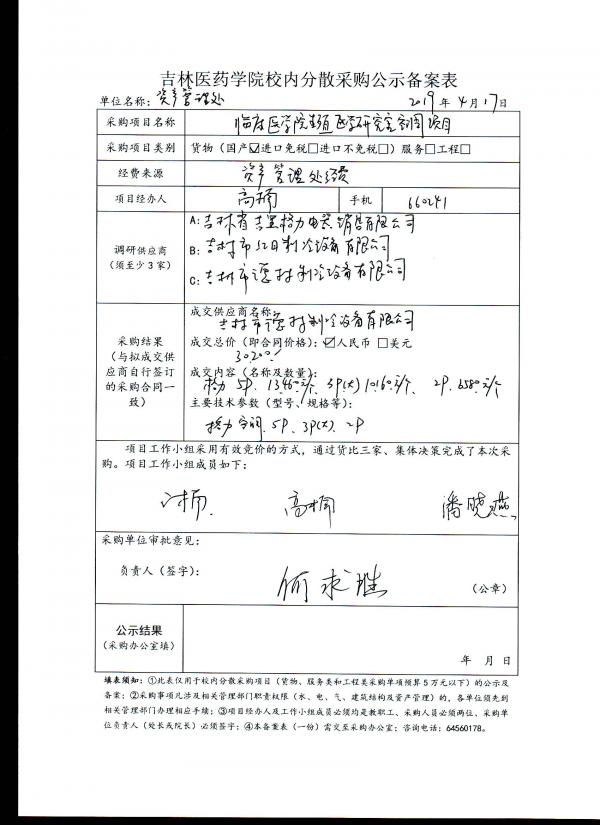 吉林医药学院校内分散采购公示备案表
单位名称：资产管理处 2019年4月17日
采购项目名称 临床医学院生殖医学研究室空调项目
采购项目类别 货物（国产☑进口免税□进口不免税□）服务□工程□
经费来源 资产管理处经费
项目经办人 高楠 手机 660241
调研供应商
（须至少3家）
A：吉林省吉黑格力电器销售有限公司
B：吉林市红日制冷设备有限公司
C：吉林市译林制冷设备有限公司
采购结果
（与拟成交供
应商自行签订
的采购合同一
致）
成交供应商名称：
吉林市译林制冷设备有限公司
成交总价（即合同价格）：☑人民币 □美元
30200
成交内容（名称及数量）：
格力 5P. 13460元/个、3P(大) 10160元/个、2P. 6580元/个
主要技术参数（型号、规格等）：
格力空调. 5P. 3P(大). 2P
项目工作小组采用有效竞价的方式，通过货比三家、集体决策完成了本次采
购。项目工作小组成员如下：
高楠 潘晓燕
采购单位审批意见：
负责人（签字）： 何求胜 （公章）
公示结果
（采购办公室填）
年 月 日
填表须知：①此表仅用于校内分散采购项目（货物、服务类和工程类采购单项预算5万元以下）的公示及
备案；②采购事项凡涉及相关管理部门职责权限（水、电、气、建筑结构及资产管理）的，各单位须先到
相关管理部门办理相应手续；③项目经办人及工作小组成员必须均是教职工、采购人员必须两位、采购单
位负责人（处长或院长）必须签字；④本备案表（一份）需交至采购办公室；咨询电话：64560178。